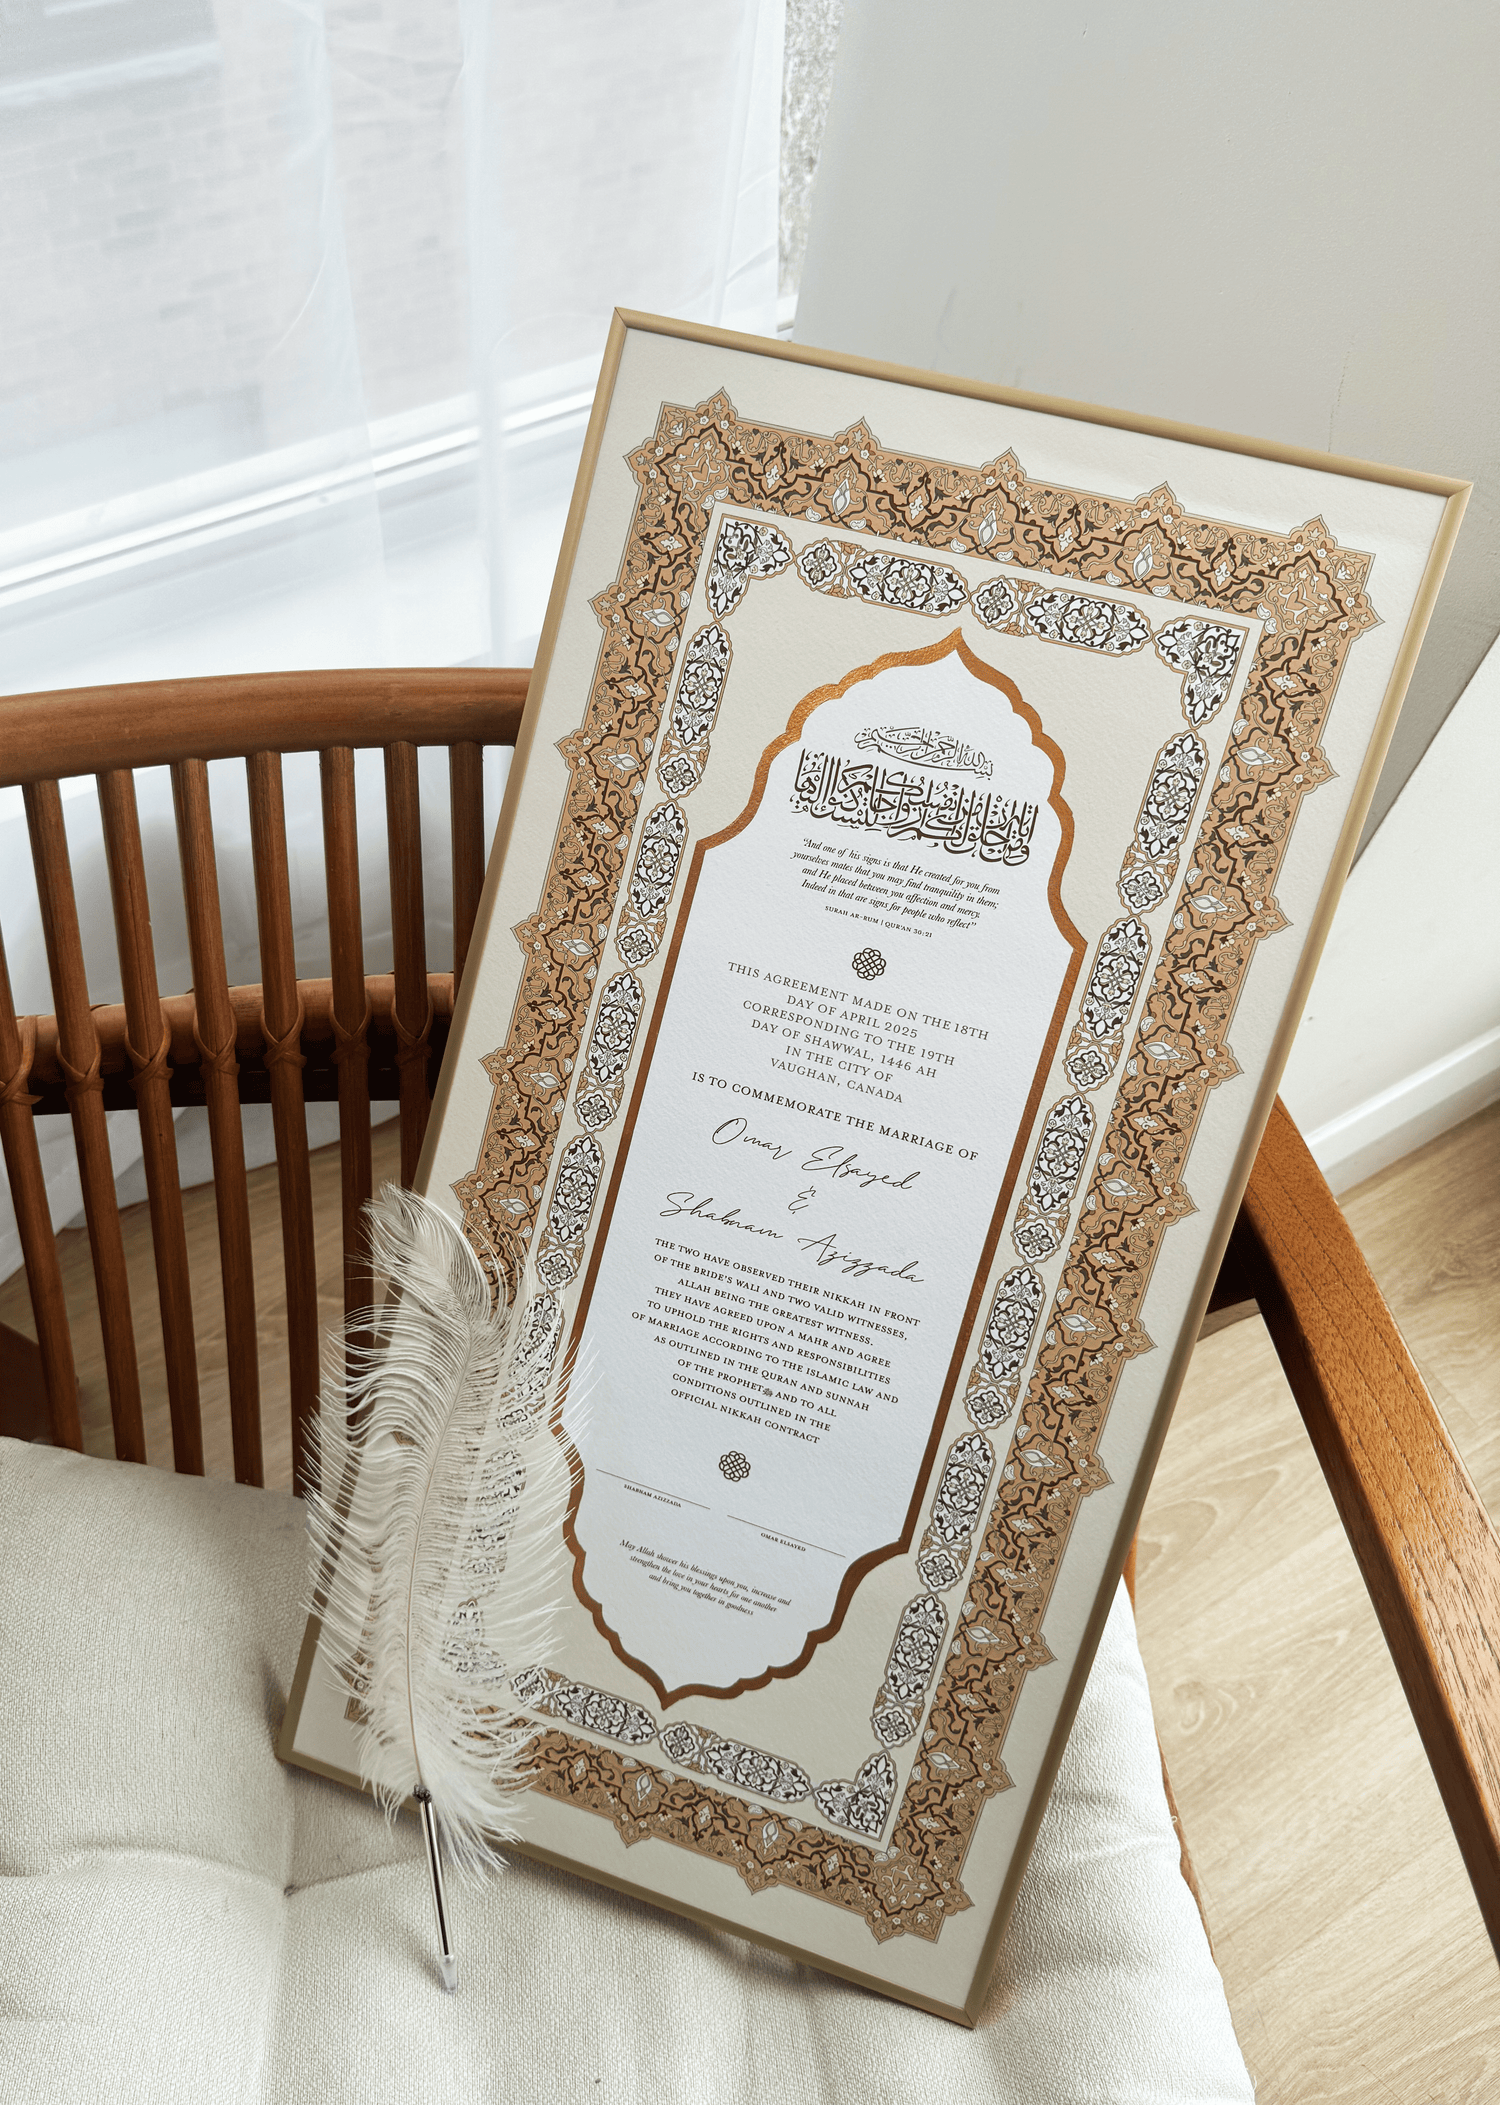 بسم الله الرحمن الرحيم
ومن آياته أن خلق لكم من أنفسكم أزواجا لتسكنوا إليها
“And one of his signs is that He created for you from
yourselves mates that you may find tranquility in them;
and He placed between you affection and mercy.
Indeed in that are signs for people who reflect”
SURAH AR-RUM | QUR'AN 30:21
THIS AGREEMENT MADE ON THE 18TH
DAY OF APRIL 2025
CORRESPONDING TO THE 19TH
DAY OF SHAWWAL, 1446 AH
IN THE CITY OF
VAUGHAN, CANADA
IS TO COMMEMORATE THE MARRIAGE OF
Omar Elsayed
&
Shabnam Azizzada
THE TWO HAVE OBSERVED THEIR NIKKAH IN FRONT
OF THE BRIDE'S WALI AND TWO VALID WITNESSES,
ALLAH BEING THE GREATEST WITNESS.
THEY HAVE AGREED UPON A MAHR AND AGREE
TO UPHOLD THE RIGHTS AND RESPONSIBILITIES
OF MARRIAGE ACCORDING TO THE ISLAMIC LAW AND
AS OUTLINED IN THE QURAN AND SUNNAH
OF THE PROPHET ﷺ AND TO ALL
CONDITIONS OUTLINED IN THE
OFFICIAL NIKKAH CONTRACT
SHABNAM AZIZZADA
OMAR ELSAYED
May Allah shower his blessings upon you, increase and
strengthen the love in your hearts for one another
and bring you together in goodness